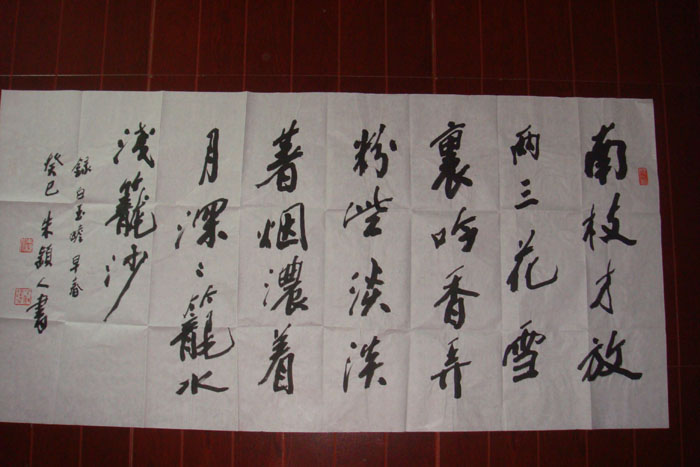 南枝才放
两三花雪
裏吟香弄
粉些淡淡
著烟濃着
月深〻籠水
浅籠沙
録白玉蟾早春
癸巳朱頴人書